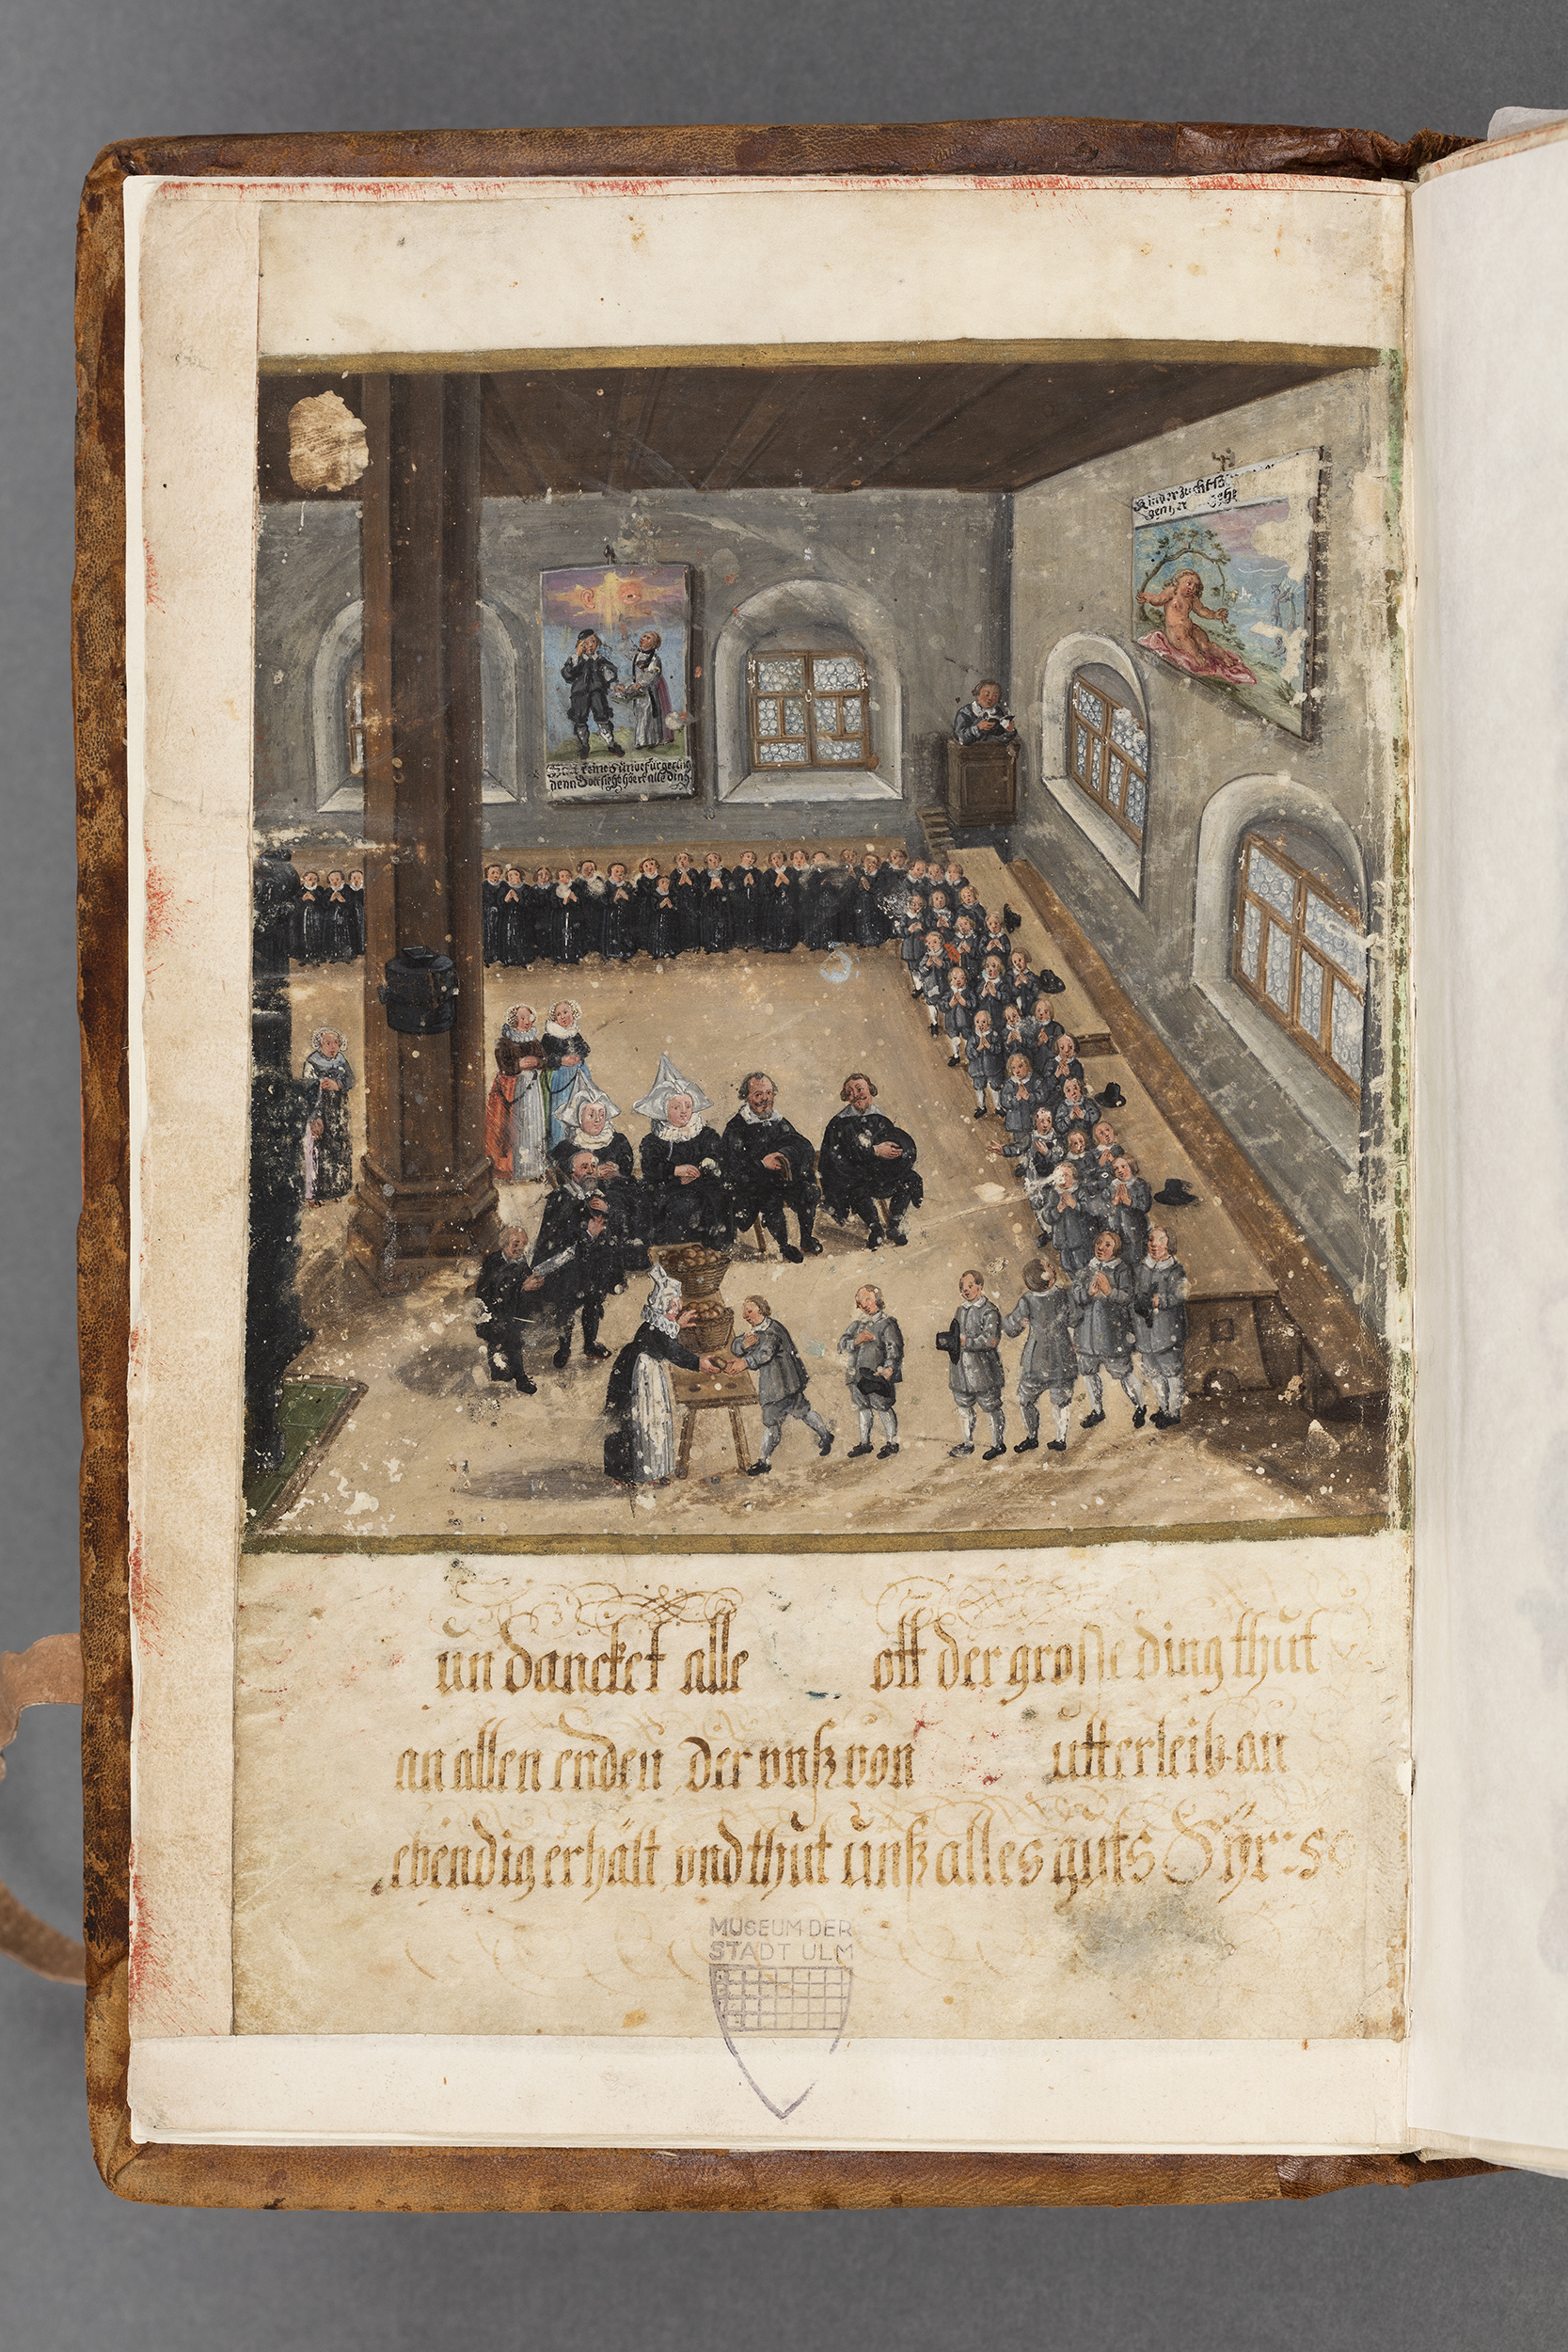 Kinderzucht
denn Gott sieht hört alle ding
un dancket alle ott der grosse ding thut
an allen enden der unß von utterleib an
ebendig erhält und thut unß alles guts Syr: 50
MUSEUM DER
STADT ULM